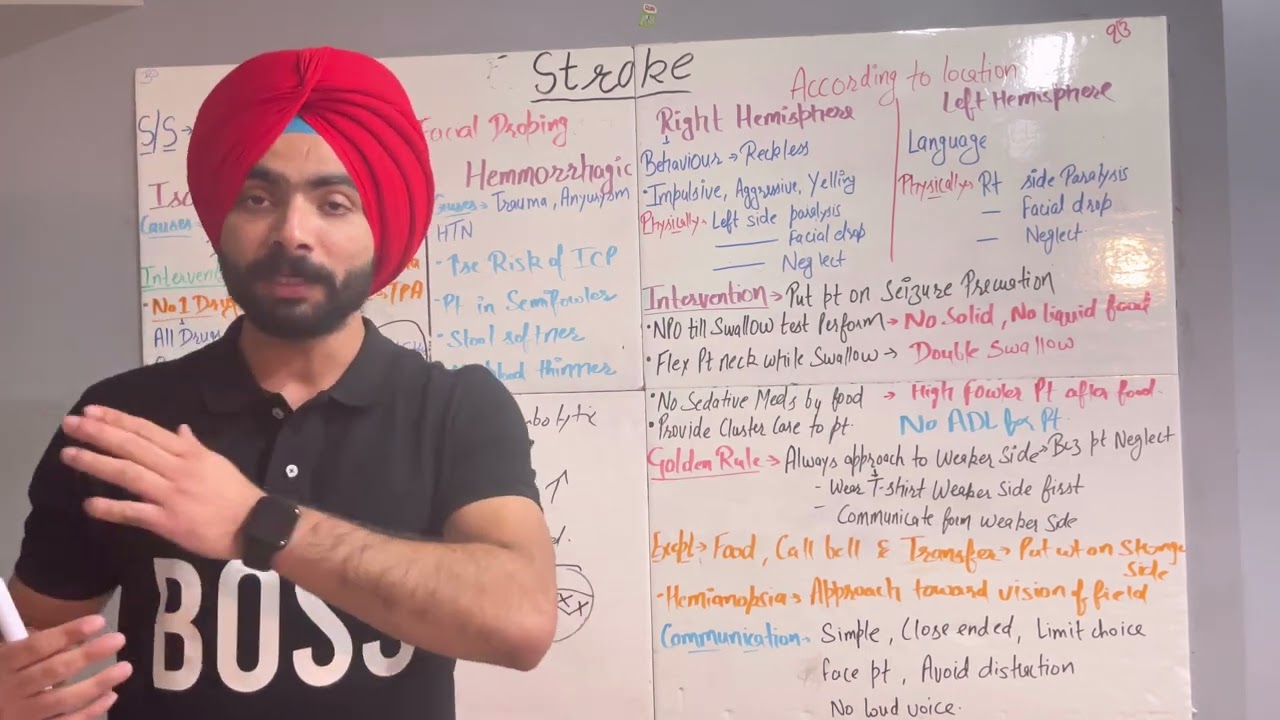 Stroke
S/S →
Facial Droping
Hemmorrhagic
Causes → Trauma, Anyurysm
HTN
Causes
Intervent
• No 1 Drug
→ TPA
All Drug
• ↑se Risk of ICP
• Pt in Semifowler
• Stool softner
blood thinner
According to location
Right Hemisphere
Behaviour → Reckless
• Impulsive, Aggressive, Yelling
Physically → Left side paralysis
Facial drop
Neglect
Left Hemisphere
Language
Physically → Rt side Paralysis
— Facial drop
— Neglect
Intervention → Put pt on Seizure Precuation
• NPO till Swallow test Perform → No Solid, No liquid food
• Flex Pt neck while Swallow → Double Swallow
• No Sedative Meds by food → High Fowler Pt after food.
• Provide Cluster Care to pt. No ADL for Pt
Golden Rule → Always approach to Weaker Side → Bcz pt Neglect
- Wear T-shirt Weaker Side first
- Communicate form weaker side
Except → Food, Call bell & Transfer → Put wt on Stronge
Side
• Hemianopsia → Approach toward vision of field
Communication → Simple, Close ended, Limit choice
face pt, Avoid distruction
No loud voice.
BOSS